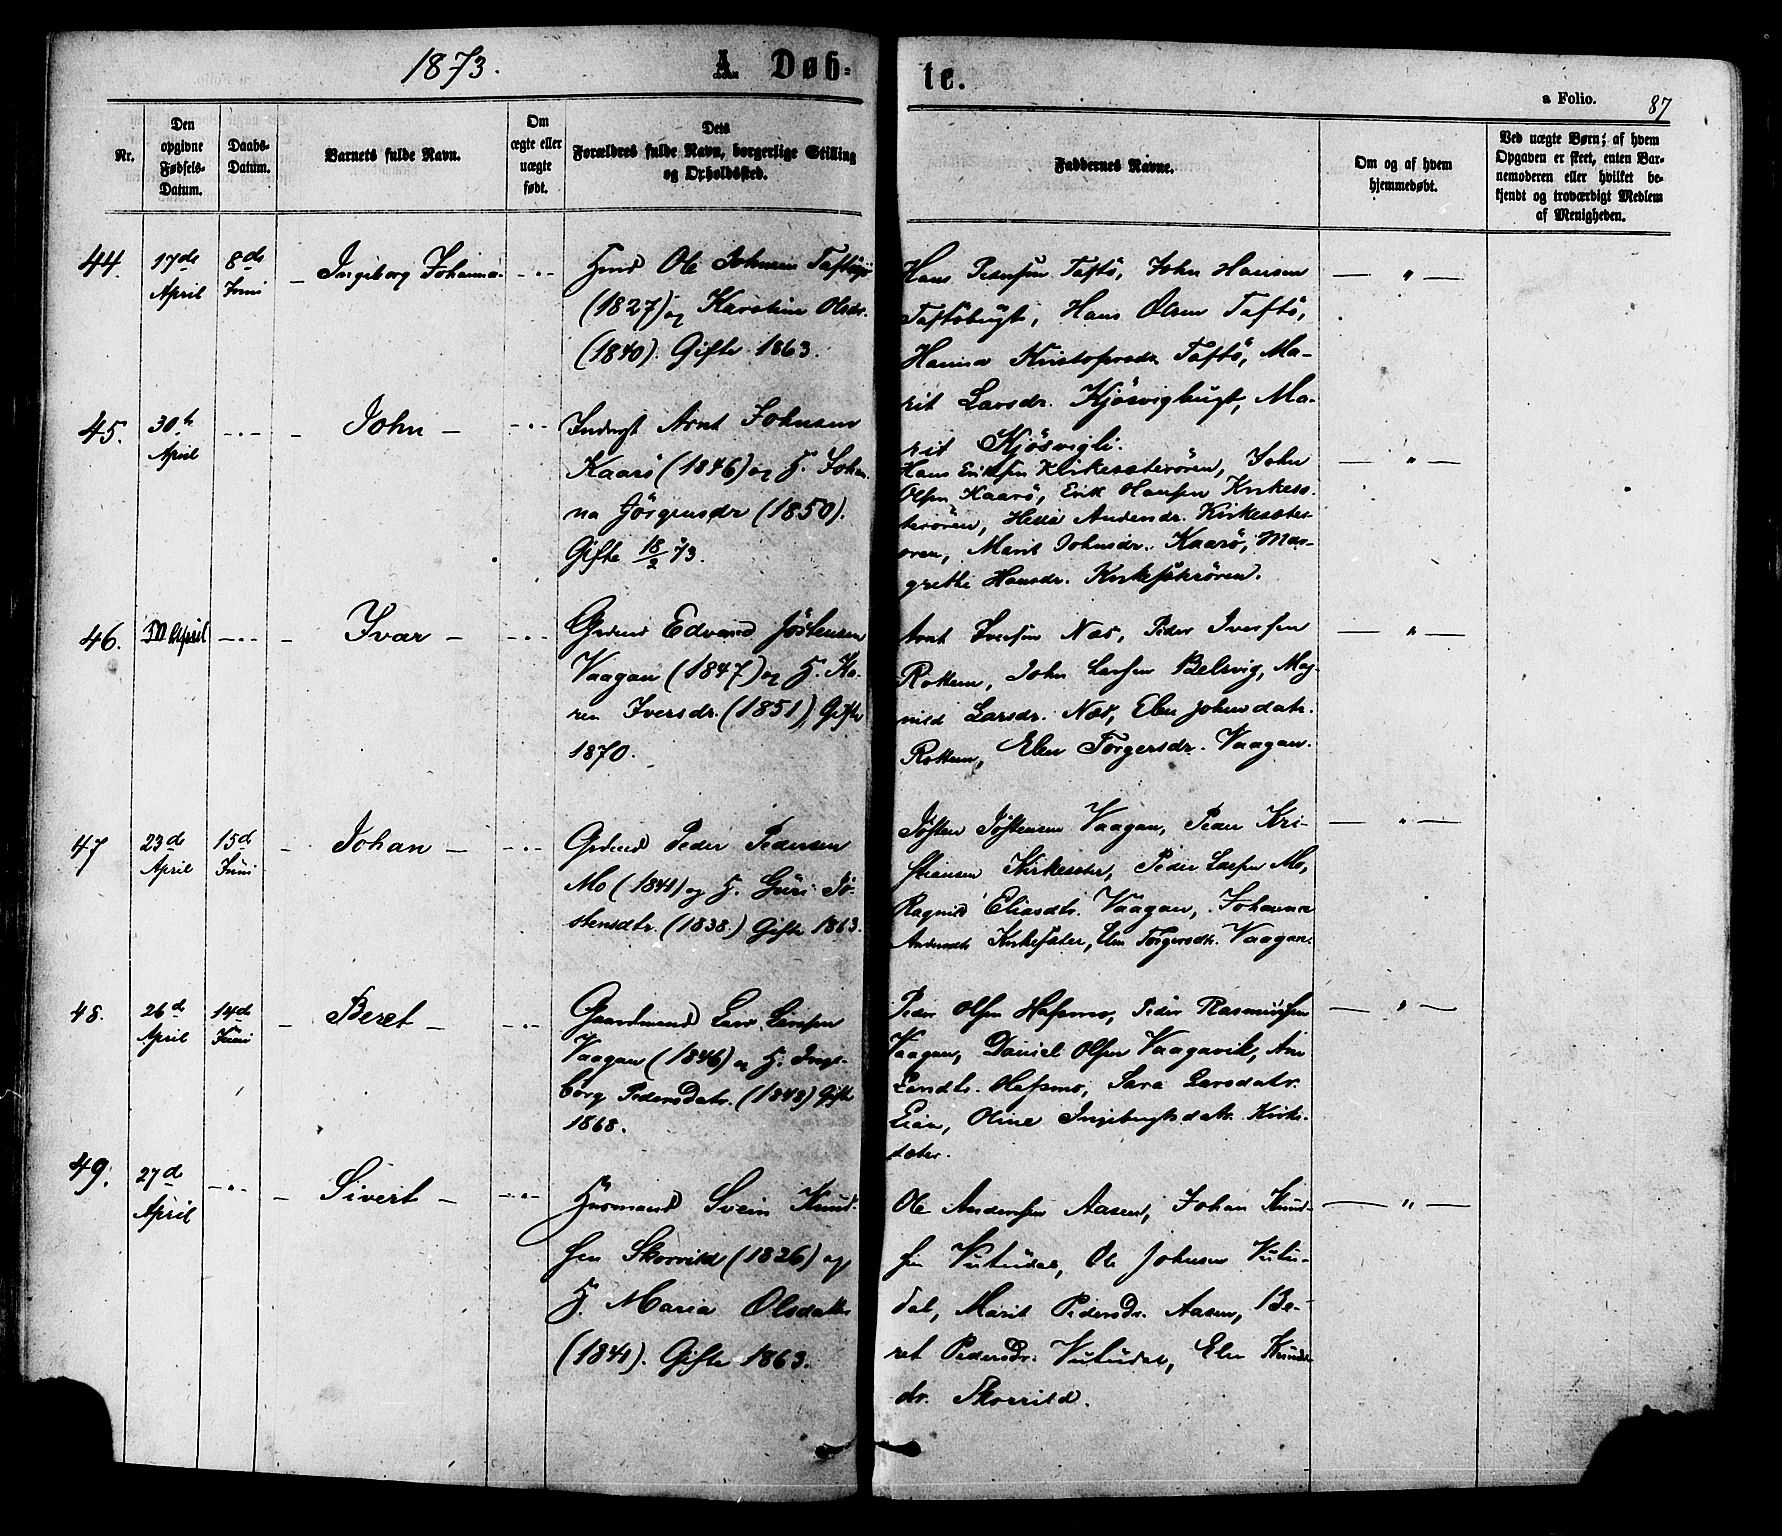 1873. A. Døb-
te.
a Folio. 87
Nr.
Den opgivne Fødsels-Datum.
Daabs-Datum.
Barnets fulde Navn.
Om ægte eller uægte født.
Dets Forældres fulde Navn, borgerlige Stilling og Opholdssted.
Faddernes Navne.
Om og af hvem hjemmedøbt.
Ved uægte Børn; af hvem Opgaven er skeet, enten Barnemoderen eller hvilket bekjendt og troværdigt Medlem af Menigheden.
44. 17de April 8de Juni – Ingeborg Johanna
Ole Johnsen
(1827) og Karoline Olsdr.
(1840). Gifte 1863.
Hans Pedersen Taftö, John Hansen
Taftöbugt, Hans Olsen Taftö,
Hanna Kristofersdr. Taftö, Ma-
rit Larsdr. Kjösvigbugt, Ma-
rit Kjösvigli.
— " —
45. 30te April – John –
Indergst Arnt Johnsen
Kaarö (1846) og H. Johan-
na Görgensdr (1850).
Gifte 18/2 73.
Hans Eriksen Kirkesæterören, John
Olsen Kaarö, Erik Hansen Kirkesæ-
terören, Andersdr. Kirkesæter-
ören, Marit Johnsdr. Kaarö, Mar-
grethe Hansdr. Kirkesæterören.
— " —
46. April – Ivar –
Grdmd Edvard Jöstensen
Vaagan (1847) og H. Ka-
ren Iversdr. (1851) Gifte
1870.
Arnt Iversen Næs, Peder Iversen
Rottem, John Larsen Belsvig, Mag-
nild Larsdr. Næs, Elen Johnsdatr.
Rottem, Elen Torgersdr. Vaagan.
— " —
47 23de April 15de Juni – Johan –
Grdmd Peder Pedersen
Mo (1841) og H. Guri Jö-
stensdtr. (1838.) Gifte 1863.
Jösten Jöstensen Vaagan, Peder Kri-
stiansen Kirkesæter, Peder Larsen Mo,
Ragnild Eliasdtr. Vaagan, Johanna
Andersdtr Kirkesæter, Elen Torgersdtr. Vaagan.
— " —
48. 26de April 14de Juni – Beret –
Gaardmand Lars Larsen
Vaagan (1846) og H. Inge-
borg Pedersdatr. (1843) Gifte
1868.
Peder Olsen Hafsmo, Peder Rasmusen
Vaagan, Daniel Olsen Vaagavik, Ane
Hafsmo, Sara Larsdatr.
Lian, Oline Ingebrigtsdatr. Kirke-
sæter.
— " —
49. 27de April – Sivert –
Husmand Svein Knud-
sen Skorrild (1826) og
H. Maria Olsdatter
(1841). Gifte 1863.
Ole Andersen Aasen, Johan Knud-
sen Vutudal, Ole Johnsen Vutu-
dal, Marit Pedersdr. Aasen, Be-
ret Pedersdr. Vutudal, Elen Knuds-
dr. Skorrild.
— " —